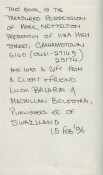 THIS BOOK IS THE
TREASURED POSSESSION
OF MARK NETTLETON
PRESENTLY OF VIZA HIGH
STREET, GRAHAMSTOWN
6140
AND WAS A GIFT FROM
A CLIENT + FRIEND
LUCK BALARIN OF
MACMILLAN BOLESWA,
PUBLISHERS OF
SWAZILAND
15 FEB '96